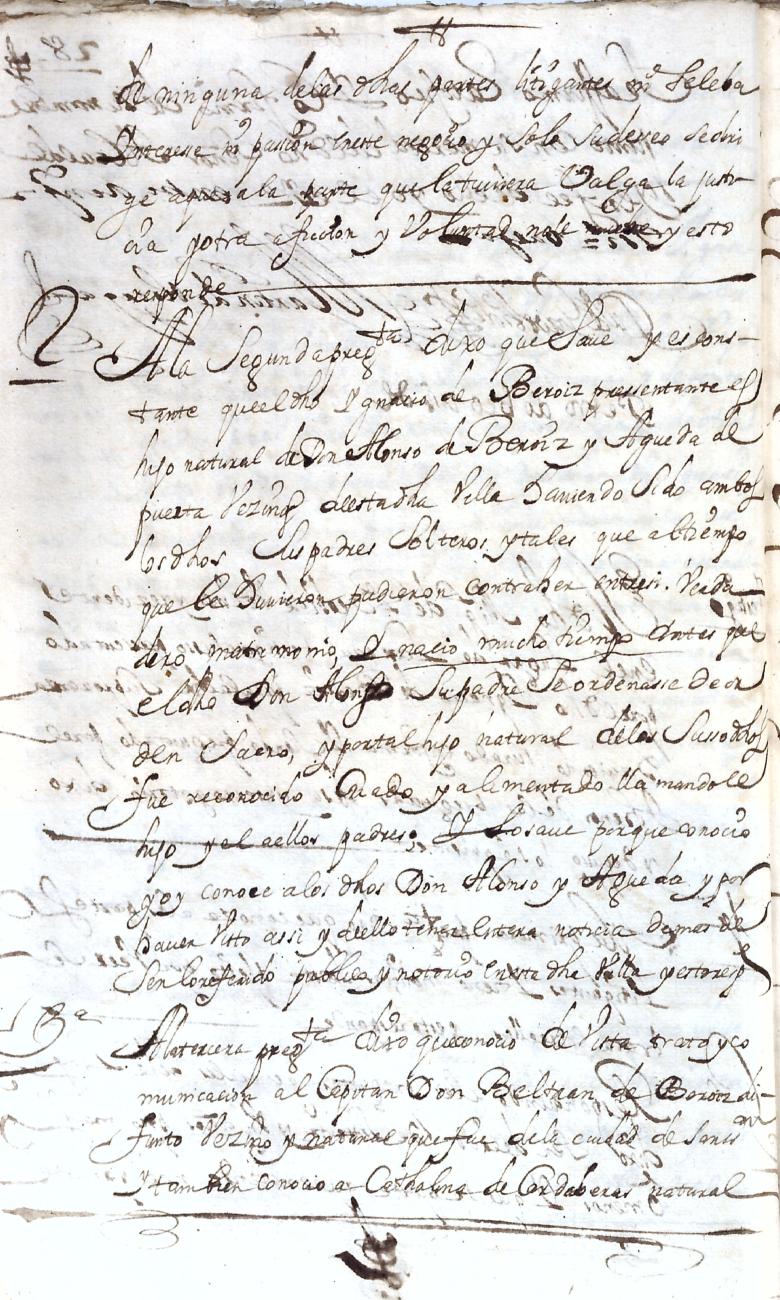 de ninguna de las dhas partes litigantes ni le leba
Interesse ni passion eneste negozio y solo su desseo se diri
ge a que a la parte que la tuviera Valga la justi
cia y otra aficcion y Voluntad no le mueve y esto
responde
2 A la Segunda preg.ta dixo que Save y es cons-
tante que el dho Ygnacio de Beroiz pressentante es
hijo natural de Don Alonso de Beroiz y Agueda de
puerta Vezinos desta dha Villa haviendo Sido ambos
los dhos Sus padres Solteros y tales que al tiempo
que le huvieron pudieron contraher entresi Verda
dero matrimonio, Y nacio mucho tiempo antes que
el dho Don Alonso Su padre Se ordenasse de or
den Sacro, y por tal hijo natural de los Sussodhos
fue reconocido Criado y alimentado llamandole
hijo y el a ellos padres, Y lo save porque conocio
y oy conoce a los dhos Don Alonso y Agueda y por
haver Visto assi y dello tener Entera noticia demas de
Ser lo referido publico y notorio en esta dha Villa y esto resp.
3a A la tercera preg.ta dixo que conocio de Vista trato y co
municacion al Capitan Don Beltran de Beroiz di-
funto Vezino y natural que fue de la ciudad de San
Y tambien conocio a Cathalina de Cordaberas natural